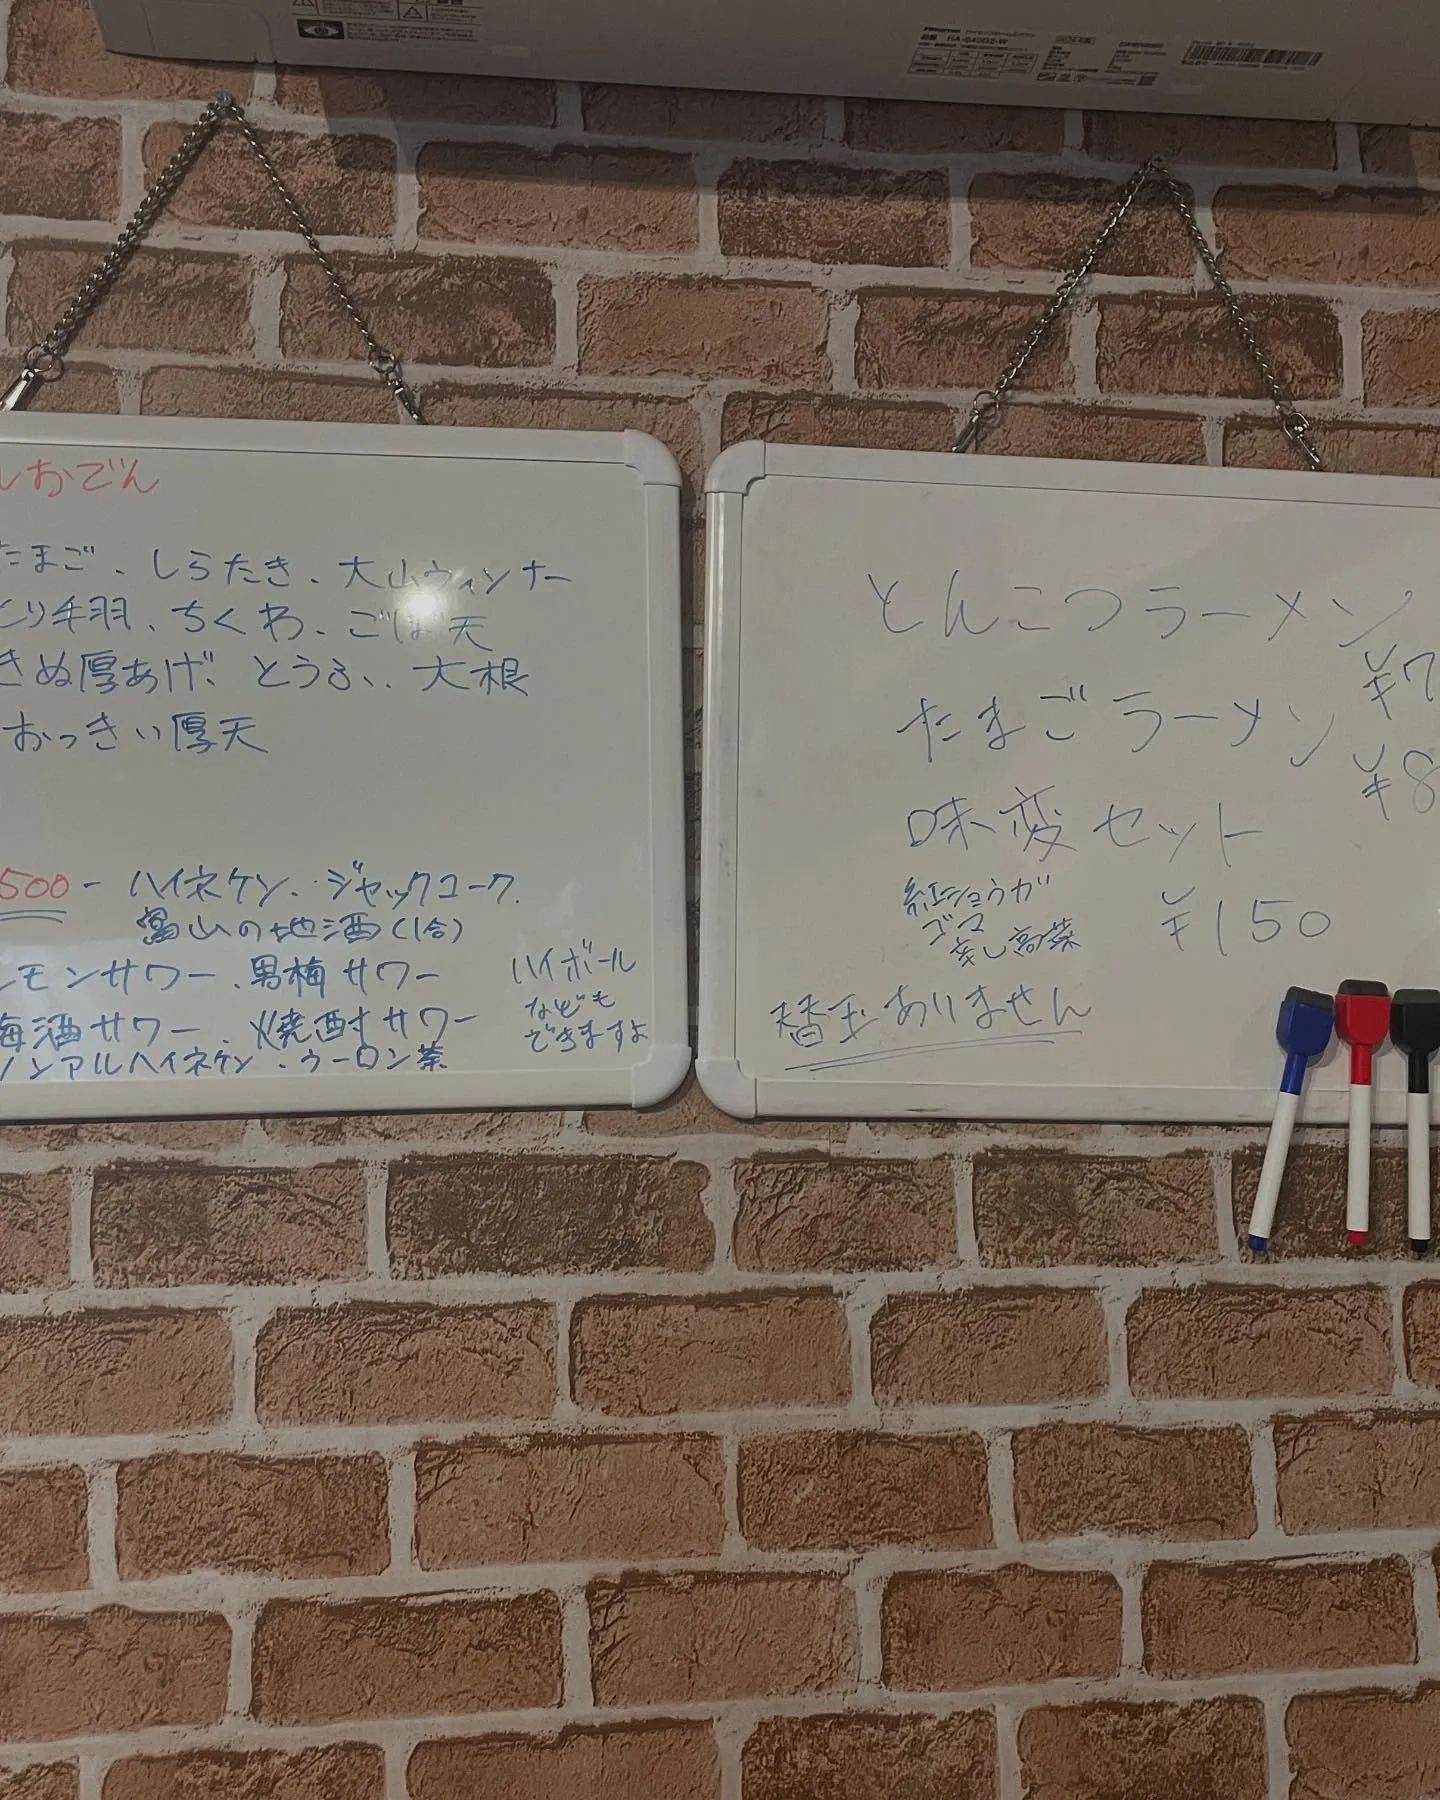 おでん
たまご、しらたき、大山ウィンナー
とり手羽、ちくわ、ごぼ天
きぬ厚あげ、とうふ、大根
おっきい厚天
500- ハイネケン、ジャックコーク
富山の地酒(1合)
レモンサワー、男梅サワー
梅酒サワー、焼酎サワー
ノンアルハイネケン、ウーロン茶
ハイボール
なども
できますよ
とんこつラーメン
¥7
たまごラーメン
¥8
味変セット
紅ショウガ
ゴマ
辛し高菜
¥150
替玉ありません